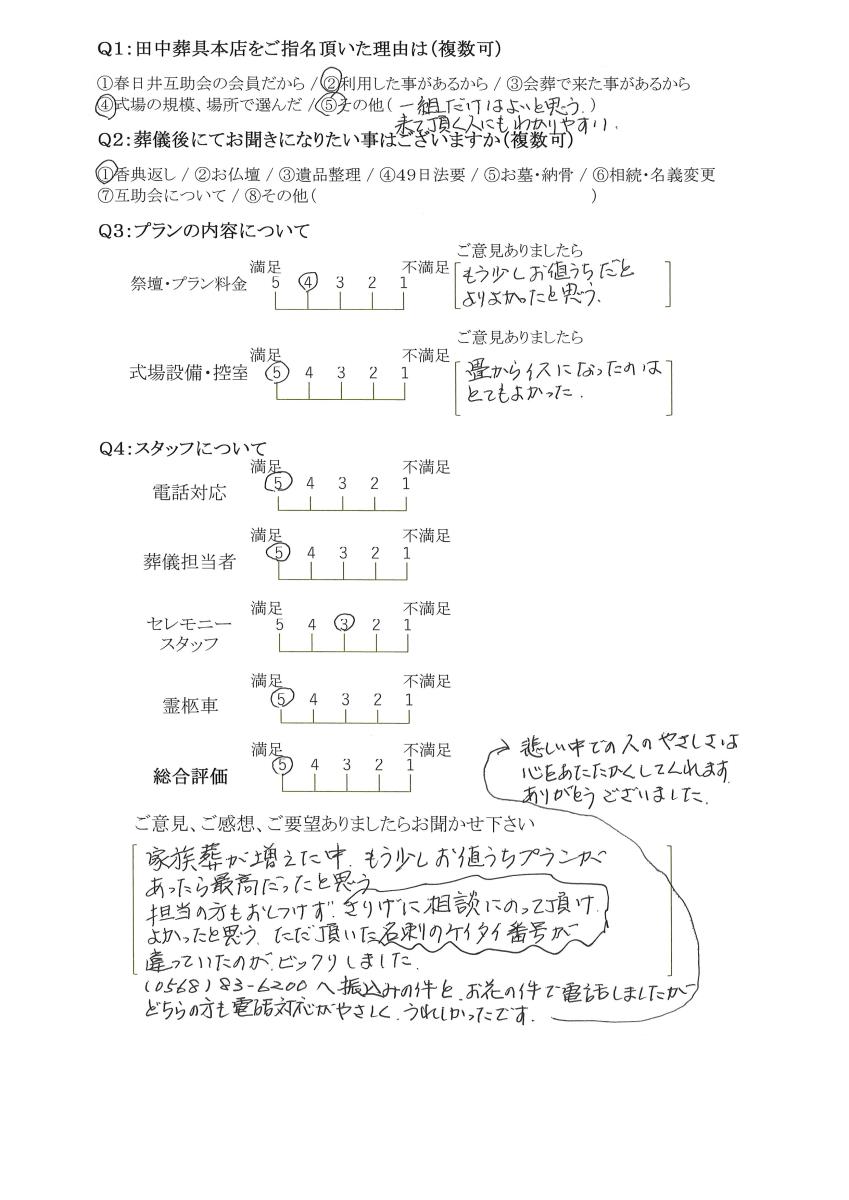 Q1：田中葬具本店をご指名頂いた理由は（複数可）
①春日井互助会の会員だから / ②利用した事があるから / ③会葬で来た事があるから
④式場の規模、場所で選んだ / ⑤その他( 一組だけはよいと思う. )
来て頂く人にもわかりやすい.
Q2：葬儀後にてお聞きになりたい事はございますか（複数可）
①香典返し / ②お仏壇 / ③遺品整理 / ④49日法要 / ⑤お墓・納骨 / ⑥相続・名義変更
⑦互助会について / ⑧その他( )
Q3：プランの内容について
ご意見ありましたら
満足 不満足
祭壇・プラン料金 5 4 3 2 1
もう少しお値うちだと
よりよかったと思う.
ご意見ありましたら
満足 不満足
式場設備・控室 5 4 3 2 1
畳からイスになったのは
とてもよかった.
Q4：スタッフについて
満足 不満足
電話対応 5 4 3 2 1
満足 不満足
葬儀担当者 5 4 3 2 1
満足 不満足
セレモニー 5 4 3 2 1
スタッフ
満足 不満足
霊柩車 5 4 3 2 1
満足 不満足
総合評価 5 4 3 2 1
ご意見、ご感想、ご要望ありましたらお聞かせ下さい
家族葬が増えた中. もう少しお値うちプランが
あったら最高だったと思う
担当の方もおしつけず. さりげに相談にのって頂け.
よかったと思う. ただ頂いた名刺のケイタイ番号が
違っていたのが. ビックリしました.
(0568)83-6200へ振込みの件と. お花の件で電話しましたが
どちらの方も電話対応がやさしく. うれしかったです.
悲しい中での人のやさしさは
心をあたたかくしてくれます.
ありがとうございました.